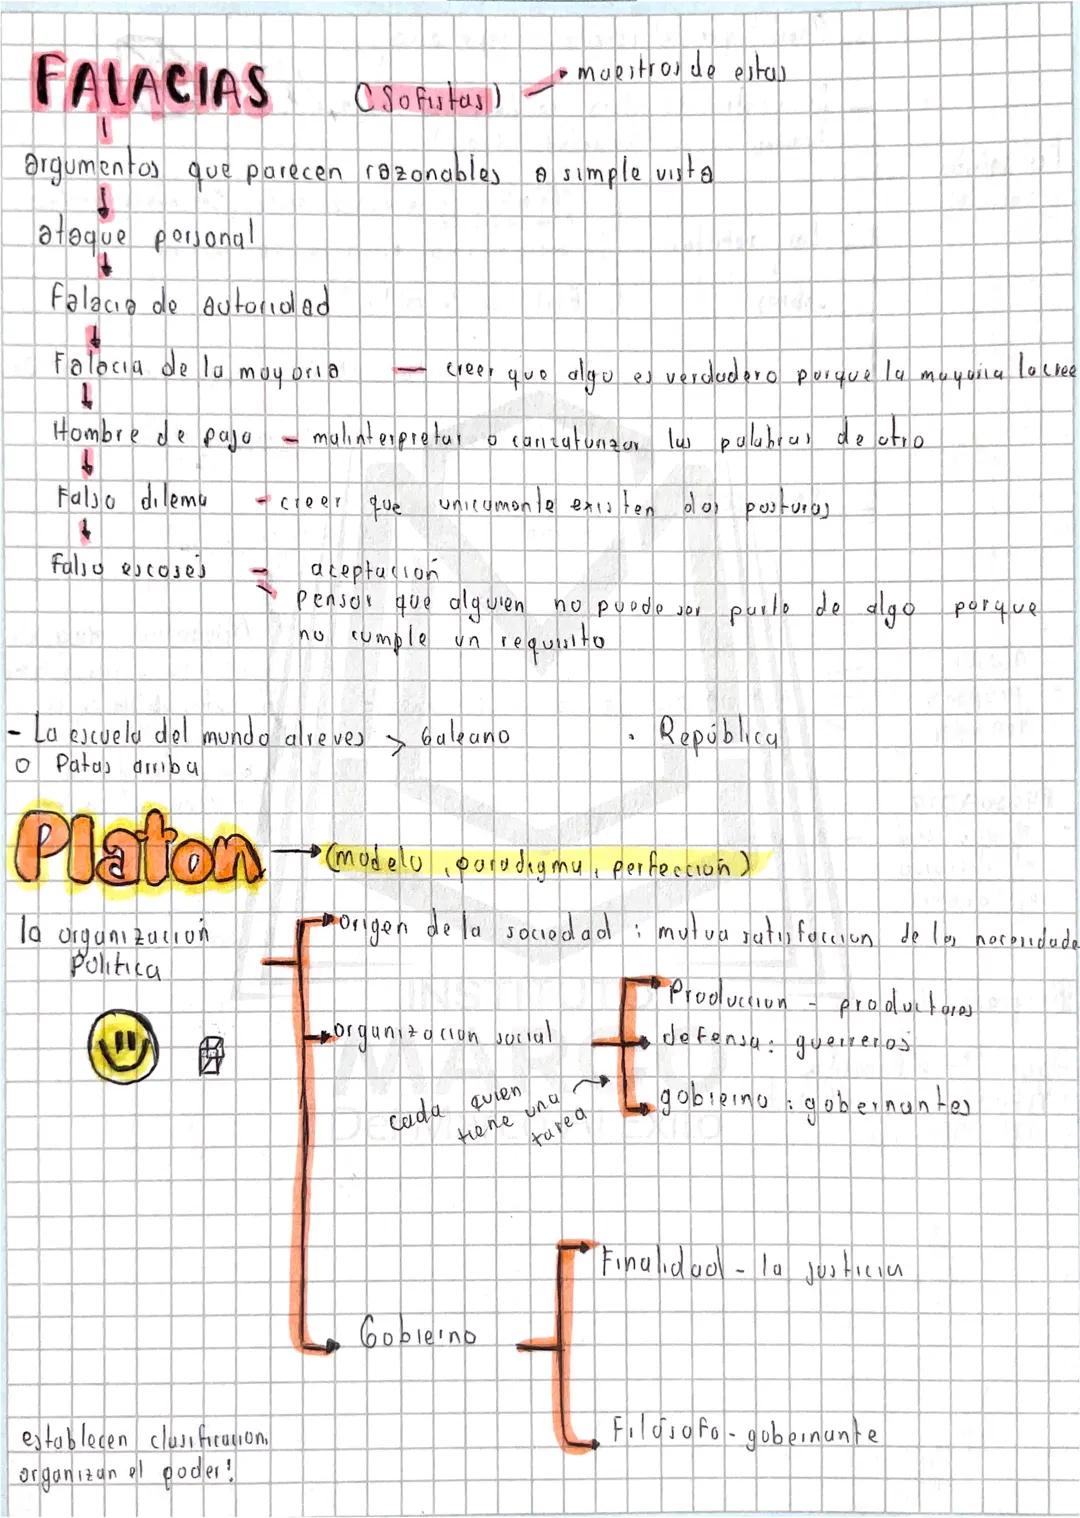 FALACIAS (Sofistas) maestros de estas
argumentos que parecen razonables a simple vista
ataque personal
Falacia de autoridad
Falacia de la mayoria — creer que algo es verdadero porque la mayoria lo cree
Hombre de paja - malinterpretar o caricaturizar las palabras de otro
Falso dilema - creer que unicamente existen dos posturas
Falso escosés - aceptación
pensar que alguien no puede ser parte de algo porque
no cumple un requisito
- La escuela del mundo alreves > Galeano · República
o Patas arriba
Platon → (modelo, paradigma, perfección)
la organización
Política
origen de la sociedad : mutua satisfaccion de las necesidade
organizacion social
Produccion - productores
defensa: guerreros
gobierno : gobernantes
cada quien
tiene una
tarea
Finalidad - la justicia
Gobierno
Filósofo - gobernante
establecen clasificacion,
organizan el poder!